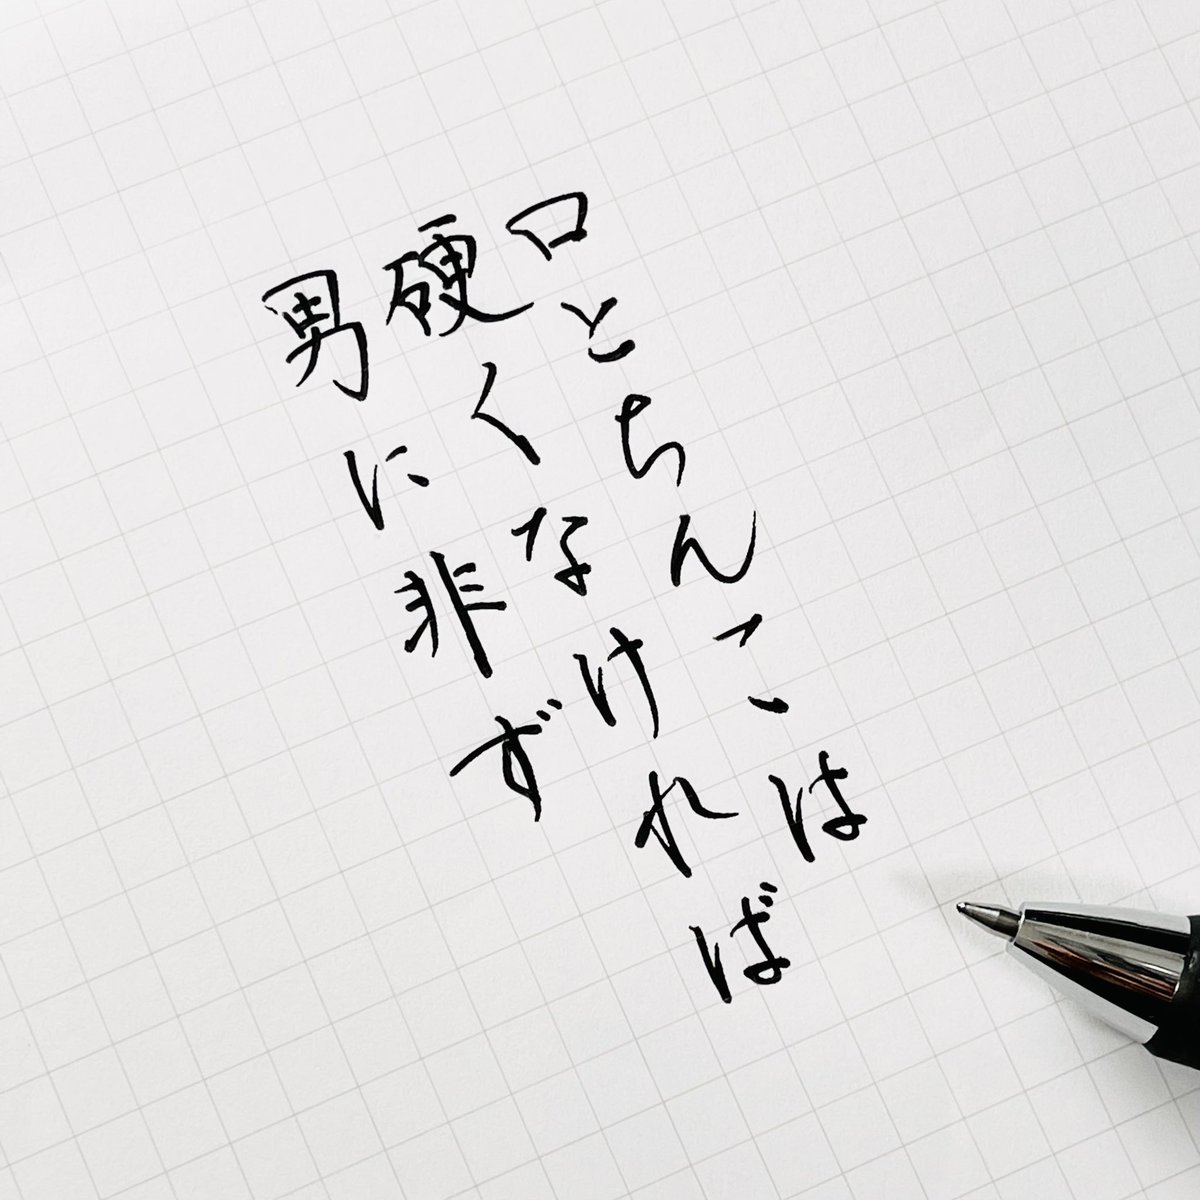 口とちんこは
硬くなければ
男に非ず